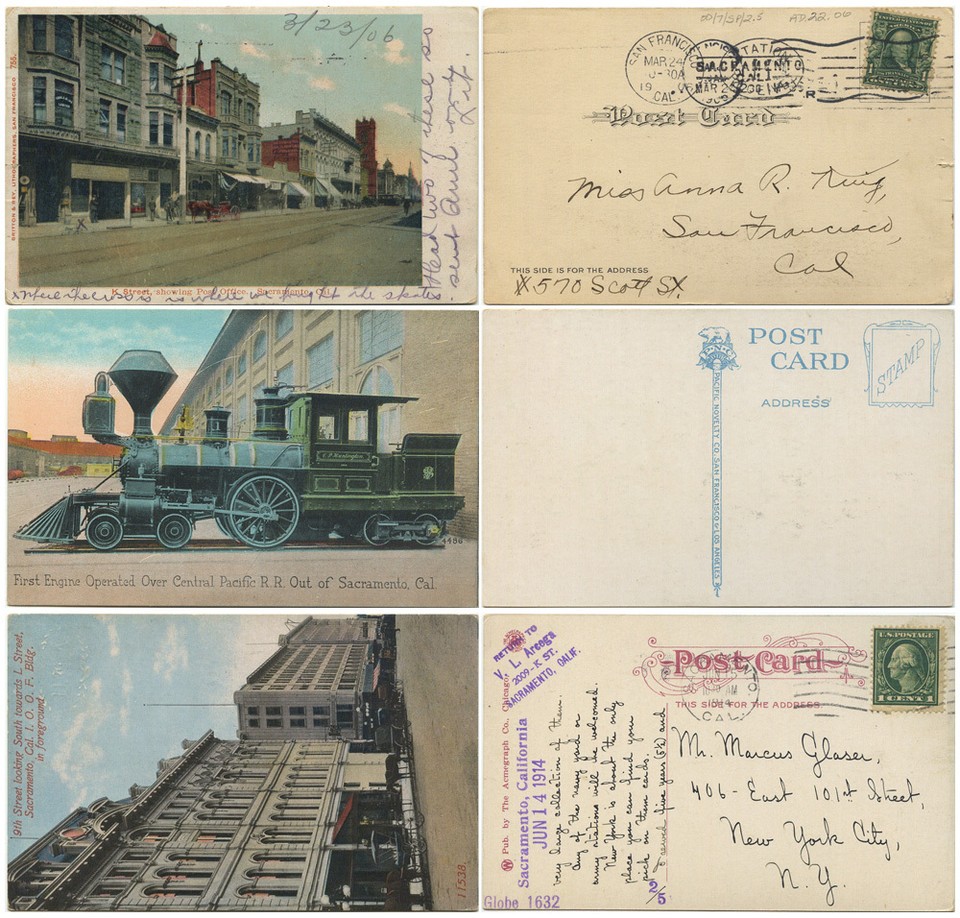 3/23/06
BRITTON & REY, LITHOGRAPHERS, SAN FRANCISCO. 755.
Head two of these so
sent Aunt one
K Street, showing Post Office, Sacramento, Cal.
x where the cross is is where we bought the skates.
00/7/SP/2.5 AD.22.06
SAN FRANCISCO
MAR 24
CAL.
STATION
SACRAMENTO
CAL.
Post Card
Miss Anna R. King,
San Francisco,
Cal
THIS SIDE IS FOR THE ADDRESS
X 570 Scott St X
C.P. Huntington
4486
First Engine Operated Over Central Pacific R.R. Out of Sacramento, Cal.
P.N.C.
POST
CARD
STAMP
ADDRESS
PACIFIC NOVELTY CO. SAN FRANCISCO & LOS ANGELES
9th Street looking South towards L Street,
Sacramento, Cal. I. O. O. F. Bldg.
in foreground.
11538.
RETURN TO
V. L. Arcega
2009-K ST.
SACRAMENTO, CALIF.
Pub. by The Acmegraph Co., Chicago.
Sacramento, California
JUN 14 1914
Globe 1632
very large collection of them.
Any of the navy yard or
army stations will be welcomed.
New York is about the only
place you can find you
pick on them cards.
I served five years (5½) and
2/5
Post Card
THIS SIDE FOR THE ADDRESS.
CAL.
U.S. POSTAGE
1 CENT 1
Mr. Marcus Glaser,
406-East 101st Street,
New York City,
N.Y.